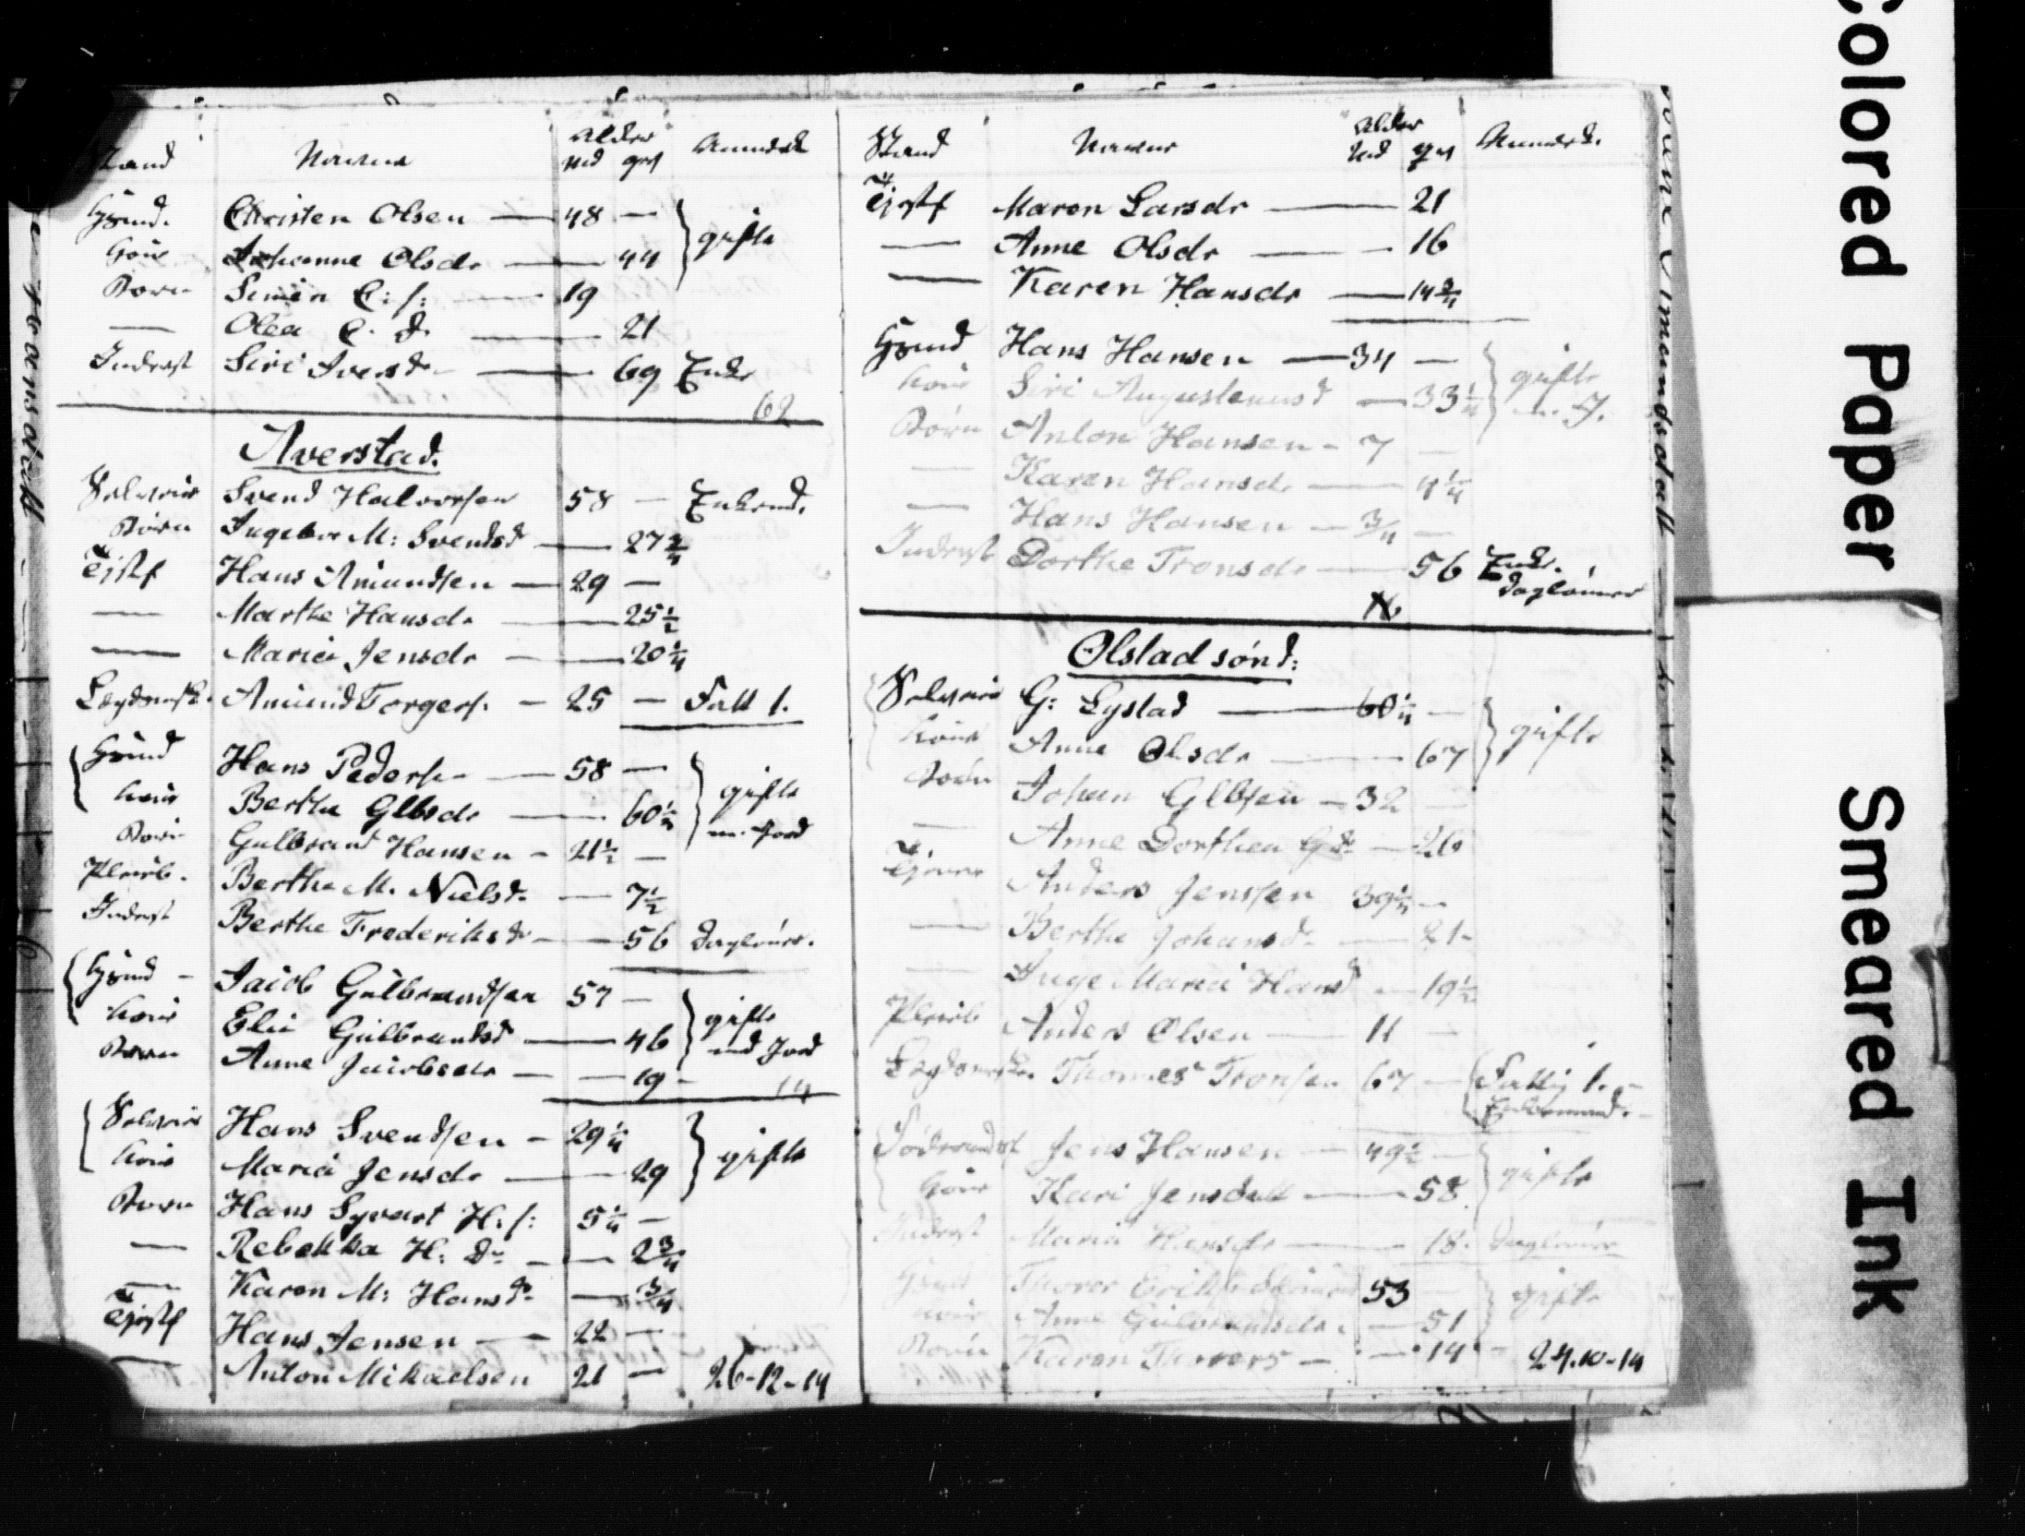 Stand Navne Alder Md qvd Anmærk
Huusmd. Christen Olsen — 48 — gifte
Kone Johanne Olsdr — 44
Børn Simen C: s: — 19
— Olea C. d. — 21
Inderst Siri Iversdr — 69 Enke
62
Averstad.
Selveier Svend Halvorsen 58 — Enkemd.
Børn Ingebor M: Svendsd — 27 3/4
Tjstf Hans Amundsen — 29 —
— Marthe Hansdr — 25 1/2
— Maria Jensdr — 20 1/4
Lægdsmsk. Amund Torgers. — 25 — Fatt l.
Huusmd Hans Peders — 58 — gifte
Kone Berthe Glbsdr — 60 1/2 m. Jord
Børn Gulbrand Hansen — 21 1/2 —
Pleieb. Berthe M. Nielsd. — 7 1/2
Inderst Berthe Frederiksdr — 56 Daglønr.
Huusmd — Jacob Gulbrandsen 57 — gifte
Kone Elie Gulbrandsd — 46 md Jord
Børn Anne Jacobsdr — 19 —
14
Selveier Hans Svendsen — 29 1/4 gifte
Kone Maria Jensdr — 29
Børn Hans Syvert H: s: 5 1/4 —
— Rebekka H: Dr — 2 3/4
— Karen M: Hansdr — 3/4
Tjstf Hans Jensen — 22 —
— Anton Mikaelsen 21 — 26-12-14
Stand Navne Alder Md qvd Anmærk.
Tjstf Maren Larsdr — 21
— Anne Olsdr — 16
— Karen Hansdr — 14 3/4
Huusmd Hans Hansen — 34 — gifte
Kone Siri Augustinusd — 33 1/4 m. J.
Børn Anton Hansen — 7 —
— Karen Hansdr — 4 1/4
— Hans Hansen — 3/4 —
Inderst Dorthe Tronsdr — 56 Enke.
Daglønner
Olstad sønd:
Selveier G: Lystad — 60 1/4 — gifte
Kone Anne Olsdr — 67
Børn Johan Glbsen — 32 —
— Anne Dorthea Gdr — 26
Tjener Anders Jenssen 39 1/4 —
— Berthe Johansdr — 21 —
— Inge Maria Hansd — 19 1/2
Pleieb Anders Olsen — 11 —
Lægdsmsk. Thomes Tronsen 67 — Fattig l. —
Enkemand. —
Føderaadsf Jens Hansen — 49 1/2 — gifte
Kone Kari Jensdatt — 58
Inderst Maria Hansdr — 18. Daglønner
Huusmd Thorer Eriks 53 — gifte
Kone Anne Gulbrandsdr. — 51
Børn Karen Thorers — 14 — 24-10-14
Colored Paper
Smeared Ink